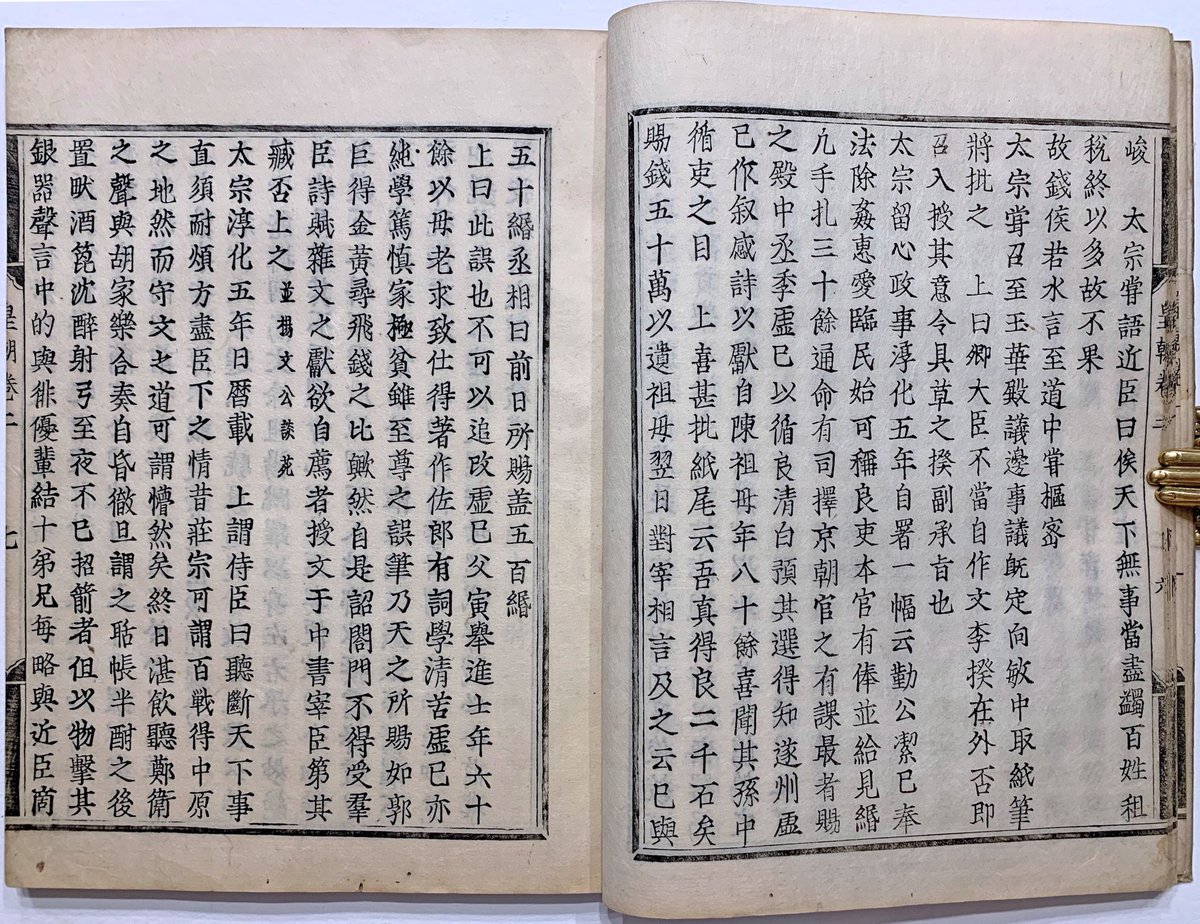 峻　太宗嘗語近臣曰俟天下無事當盡蠲百姓租
稅終以多故不果
故錢侯若水言至道中嘗樞密
太宗嘗召至玉華殿議邊事議既定向敏中取紙筆
將批之　上曰卿大臣不當自作文李揆在外否即
召入授其意令具草之揆副承旨也
太宗留心政事淳化五年自署一幅云勤公潔已奉
法除姦惠愛臨民始可稱良吏本官有俸並給見緡
凢手扎三十餘通命有司擇京朝官之有課最者賜
之殿中丞季虛已以循良清白預其選得知遂州虛
已作敘感詩以獻自陳祖母年八十餘喜聞其孫中
循吏之目　上喜甚批紙尾云吾真得良二千石矣
賜錢五十萬以遺祖母翌日對宰相言及之云已與
五十緡丞相曰前日所賜盖五百緡
上曰此誤也不可以追改虛已父寅舉進士年六十
餘以母老求致仕得著作佐郎有詞學清苦虛已亦
純學篤慎家極貧雖至尊之誤筆乃天之所賜如郭
巨得金黃尋飛錢之比歟然自是詔閤門不得受羣
臣詩賦雜文之獻欲自薦者授文于中書宰臣第其
臧否上之並楊文公談苑
太宗淳化五年日曆載　上謂侍臣曰聽斷天下事
直須耐煩方盡臣下之情昔莊宗可謂百戰得中原
之地然而守文之道可謂懵然矣終日湛飲聽鄭衛
之聲與胡家樂合奏自昏徹旦謂之聒帳半酣之後
置畎酒箆沈醉射弓至夜不已招箭者但以物擊其
銀器聲言中的與俳優輩結十弟兄每略與近臣商
皇朝卷二　七